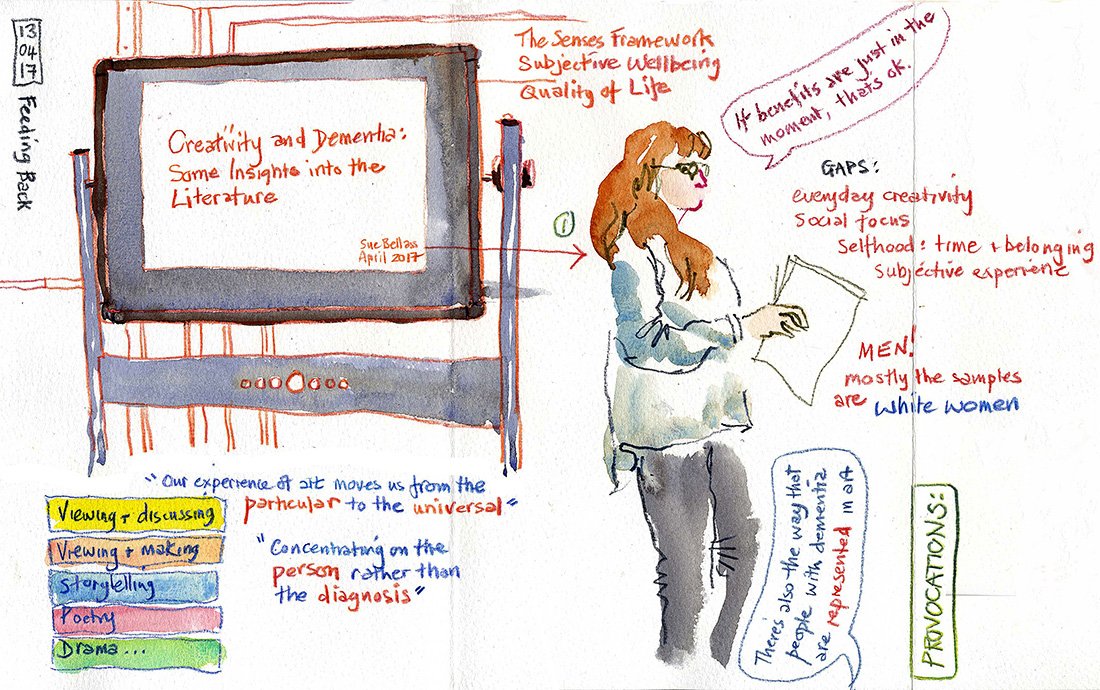 13
04
17
Feeding Back
Creativity and Dementia:
Some Insights into the
Literature
Sue Bellass
April 2017
The Senses Framework
Subjective Wellbeing
Quality of Life
If benefits are just in the
moment, that's ok.
①
GAPS:
everyday creativity
Social focus
Selfhood: time + belonging
Subjective experience
MEN!
mostly the samples
are white women
"Our experience of art moves us from the
particular to the universal"
"Concentrating on the
person rather than
the diagnosis"
Viewing + discussing
Viewing + making
Storytelling
Poetry
Drama...
There's also the way that
people with dementia
are represented in art
PROVOCATIONS: